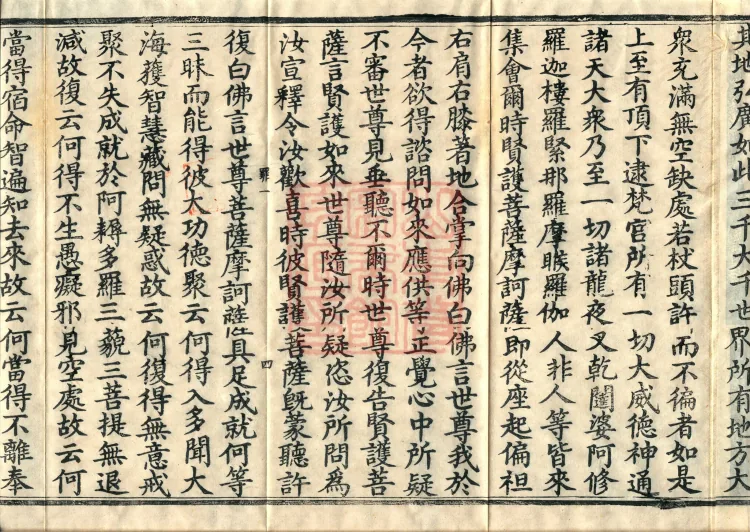 其地弘廣如此三千大千世界所有地方大
眾充滿無空缺處若杖頭許而不徧者如是
上至有頂下逮梵宮所有一切大威德神通
諸天大眾乃至一切諸龍夜叉乾闥婆阿修
羅迦樓羅緊那羅摩睺羅伽人非人等皆來
集會爾時賢護菩薩摩訶薩即從座起偏袒
右肩右膝著地合掌向佛白佛言世尊我於
今者欲得諮問如來應供等正覺心中所疑
不審世尊見垂聽不爾時世尊復告賢護菩
薩言賢護如來世尊隨汝所疑恣汝所問為
汝宣釋令汝歡喜時彼賢護菩薩既蒙聽許
四
復白佛言世尊菩薩摩訶薩具足成就何等
三昧而能得彼大功德聚云何得入多聞大
海獲智慧藏問無疑惑故云何復得無意戒
聚不失成就於阿耨多羅三藐三菩提無退
減故復云何得不生愚癡邪見空處故云何
當得宿命智遍知去來故云何當得不離奉